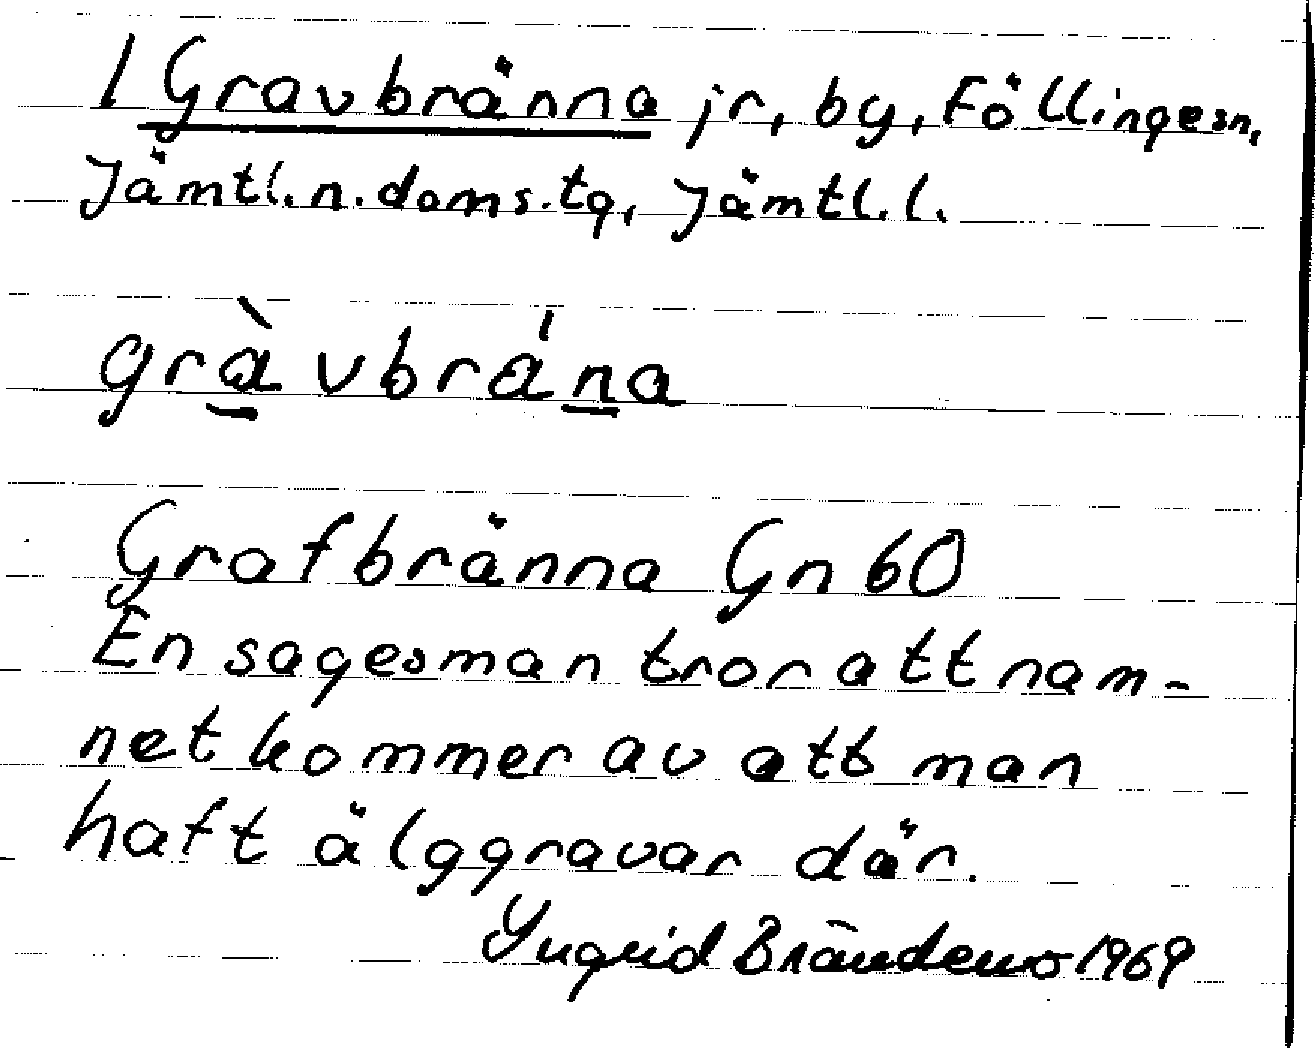 1 Gravbränna jr, by, Föllingesn,
Jämtl. n. doms. tg, Jämtl. l.
gràvbrána
Grafbränna Gn 60
En sagesman tror att nam-
net kommer av att man
haft älggravar där.
Yngrid Brändemo 1969